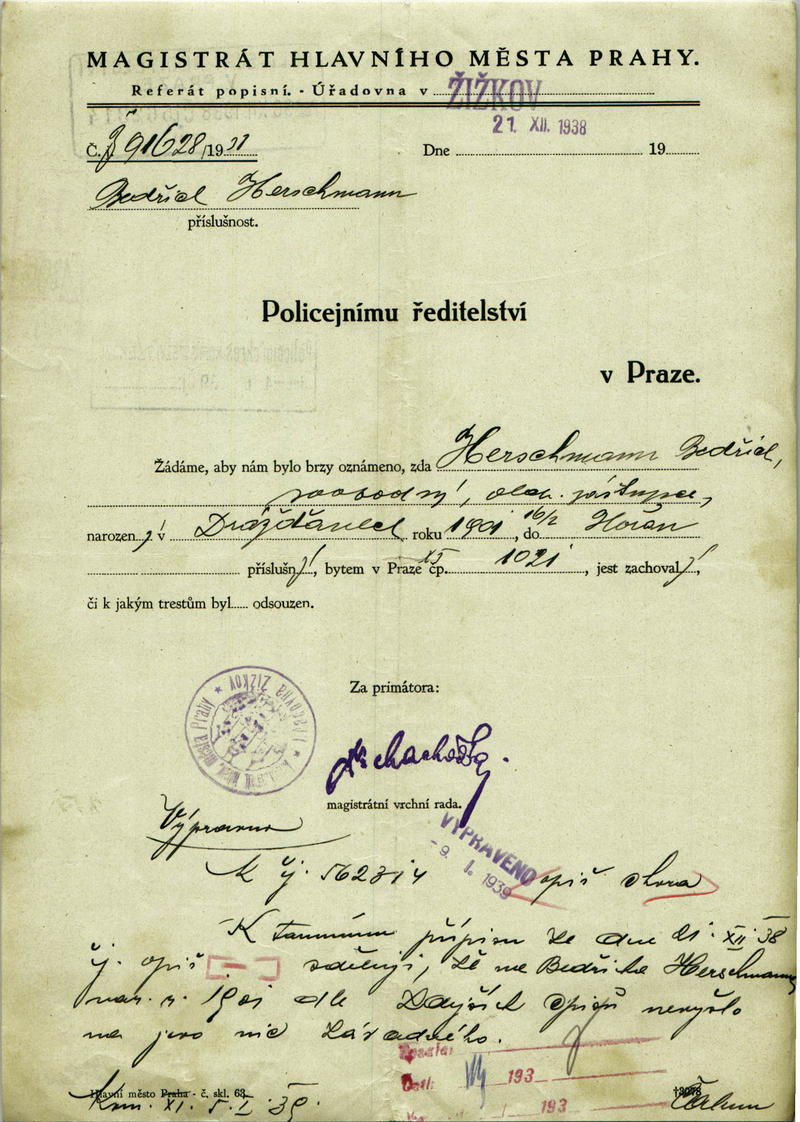 MAGISTRÁT HLAVNÍHO MĚSTA PRAHY.
Referát popisní. - Úřadovna v ŽIŽKOV
21. XII. 1938
Č. 91628/19
Dne 19
Bedřich Herschmann
příslušnost.
Policejnímu ředitelství
v Praze.
Žádáme, aby nám bylo brzy oznámeno, zda Herschmann Bedřich,
svobodný, obch. zástupce,
narozený v Drážďanech roku 1901 16/2, do Hořan
příslušný, bytem v Praze XI čp. 1021, jest zachovalý,
či k jakým trestům byl..... odsouzen.
Za primátora:
magistrátní vrchní rada.
Výpravna
VYPRAVENO
-9. I. 1939
K čj. 562314 opiš shora
K tamnímu přípisu ze dne 21. XII. 38
čj. opiš sděluji, že na Bedřicha Herschmanna
nar. r. 1901 dle zdejších spisů nevyšlo
na jevo nic závadného.
Dosílal
Došl: 193
193
Hlavní město Praha - č. skl. 63.
Kom. XI. 5. I. 39.